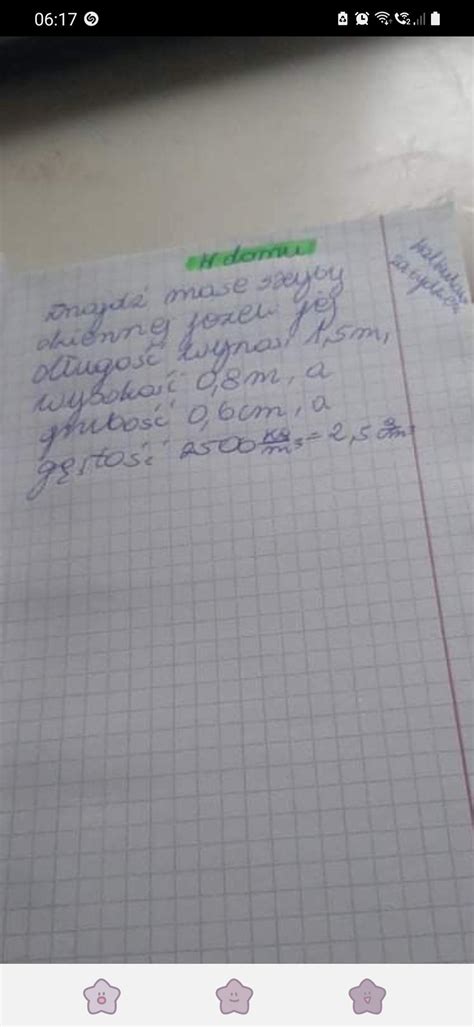 06:17
W domu
znajdź masę szyby
okiennej jeżeli jej
długość wynosi 1,5m,
wysokość 0,8m, a
grubość 0,6cm, a
gęstość 2500 kg/m³ = 2,5 g/cm³